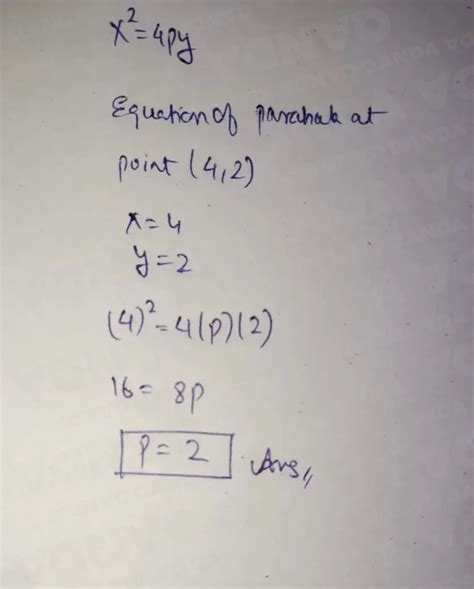 x² = 4py
Equation of parabola at
point (4,2)
x = 4
y = 2
(4)² = 4(p)(2)
16 = 8p
p = 2 Ans,,